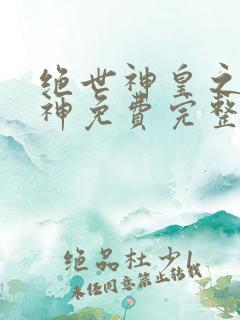 绝世神皇之
神免费完整
绝品杜少1
未经同意禁止转载